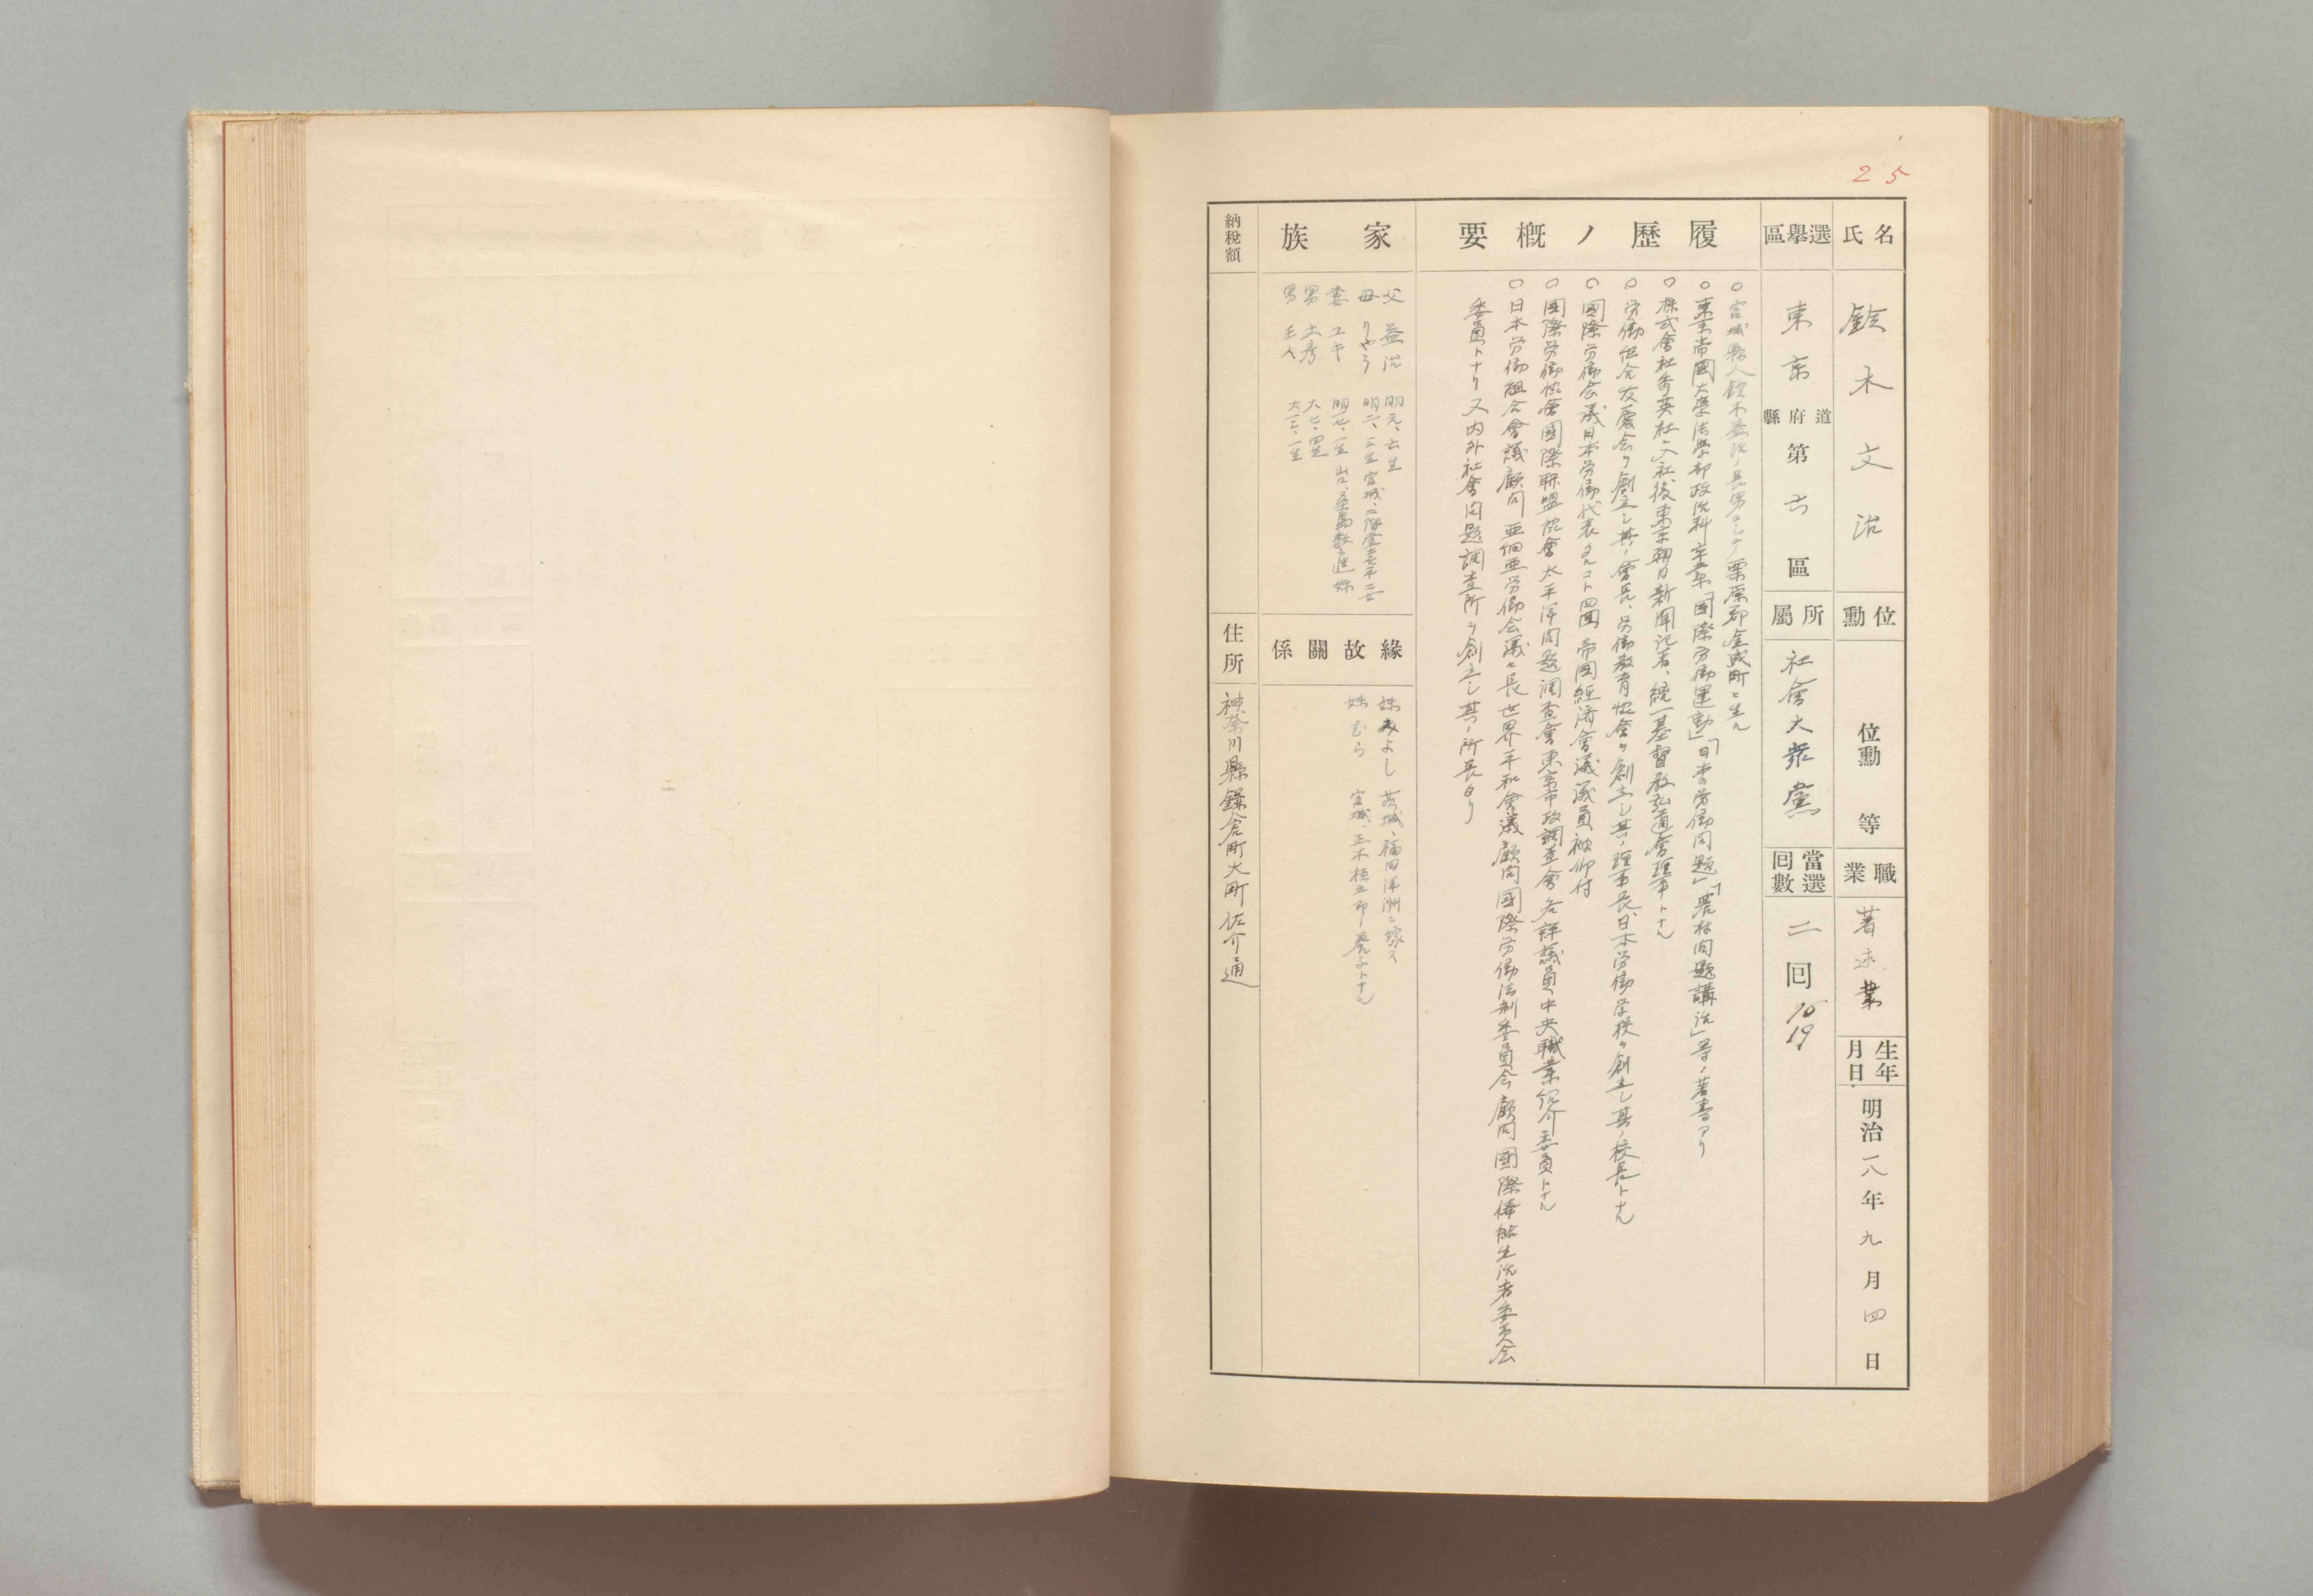 25
氏名
鈴木文治
位勲
位勲 等
職業
著述業
生年月日
明治一八年九月四日
選擧區
東京 道府縣 第六區
所屬
社會大衆黨
當選囘數
二囘 16 19
履歷ノ概要
○宮城縣人鈴木益治ノ長男ニシテ栗原郡金成町ニ生ル
○東京帝國大學法學部政治科卒業「國際労働運動」「日本の労働問題」「農村問題講話」等ノ著書アリ
○株式會社秀英社ニ入社後東京朝日新聞記者、統一基督教弘道會理事トナル
○労働組合友愛会ヲ創立シ其ノ會長、労働教育協會ヲ創立シ其ノ理事長、日本労働学校ヲ創立シ其ノ校長トナル
○國際労働会議日本労働代表タルコト四囘 帝国経済會議議員被仰付
○國際労働協會國際聯盟協會太平洋問題調査會東京市政調査會各評議員、中央職業紹介委員トナル
○日本労働組合會議顧問 亜細亜労働会議々長 世界平和會議顧問 國際労働法制委員会顧問 國際俸給生活者委員会
委員トナリ又内外社會問題調査所ヲ創立シ其ノ所長タリ
家族
父 益治 明元、六生
母 りやう 明二、三生 宮城、二階堂喜平二女
妻 ユキ 明一七、一生
男 士彦 大七、四生
男 正人 大一三、一生
緣故關係
妹 みよし 茨城、福田洋洲ニ嫁ス
妹 むら 宮城、正木 養子トナル
納稅額
住所
神奈川縣鎌倉町大町佐介通